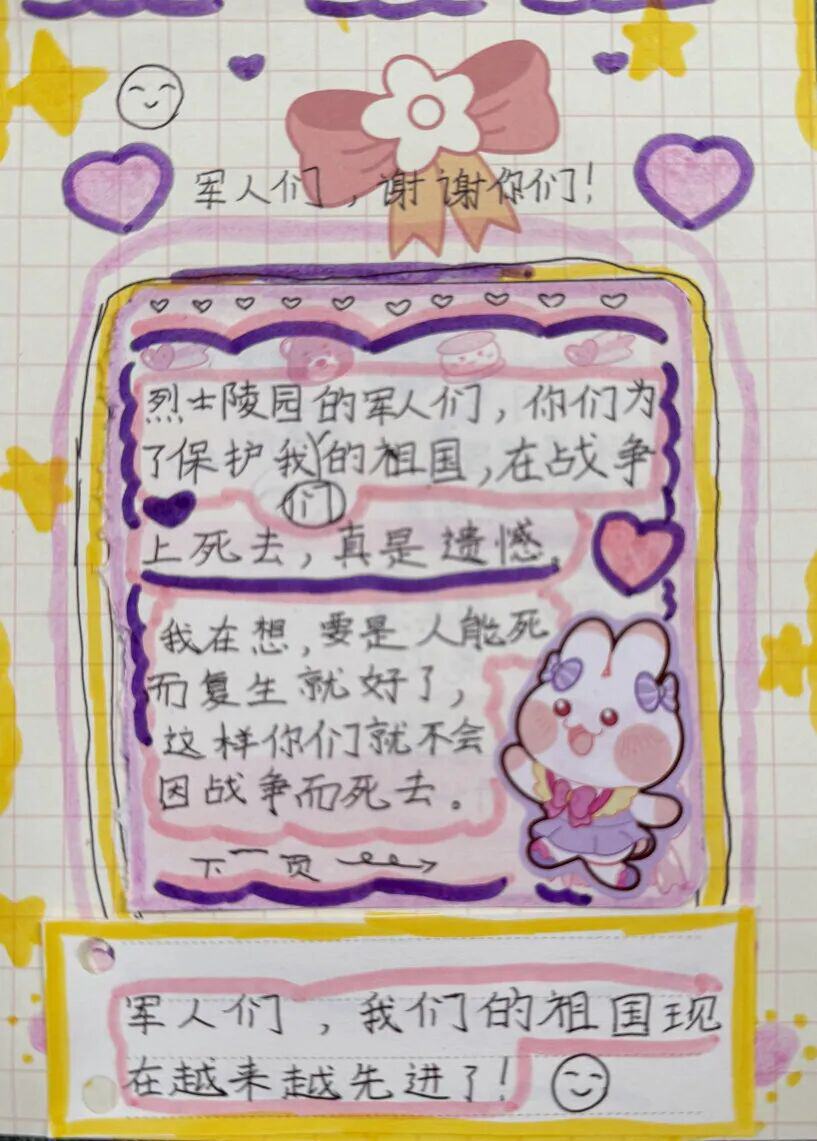 军人们，谢谢你们！
烈士陵园的军人们，你们为
了保护我们的祖国，在战争
上死去，真是遗憾。
我在想，要是人能死
而复生就好了，
这样你们就不会
因战争而死去。
下一页
军人们，我们的祖国现
在越来越先进了！